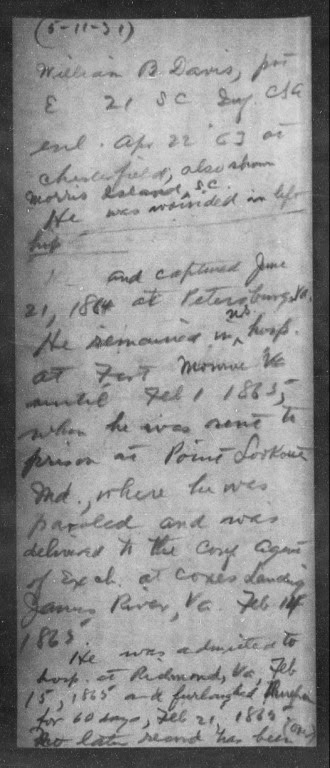 (5-11-31)
William B Davis, pvt
E 21 SC Inf. CSA
enl. Apr 22 '63 at
Chesterfield, also shown
Morris Island, S.C.
He was wounded in left
hip
and captured June
21, 1864 at Petersburg, Va.
He remained in U.S. hosp.
at Fort Monroe Va
until Feb 1 1865,
when he was sent to
prison at Point Lookout
Md., where he was
paroled and was
delivered to the Conf agent
of Exch. at Coxes Landing
James River, Va. Feb 14
1865.
He was admitted to
hosp. at Richmond, Va, Feb
15, 1865 and furloughed therefrom
for 60 days, Feb 21, 1865
No later record has been